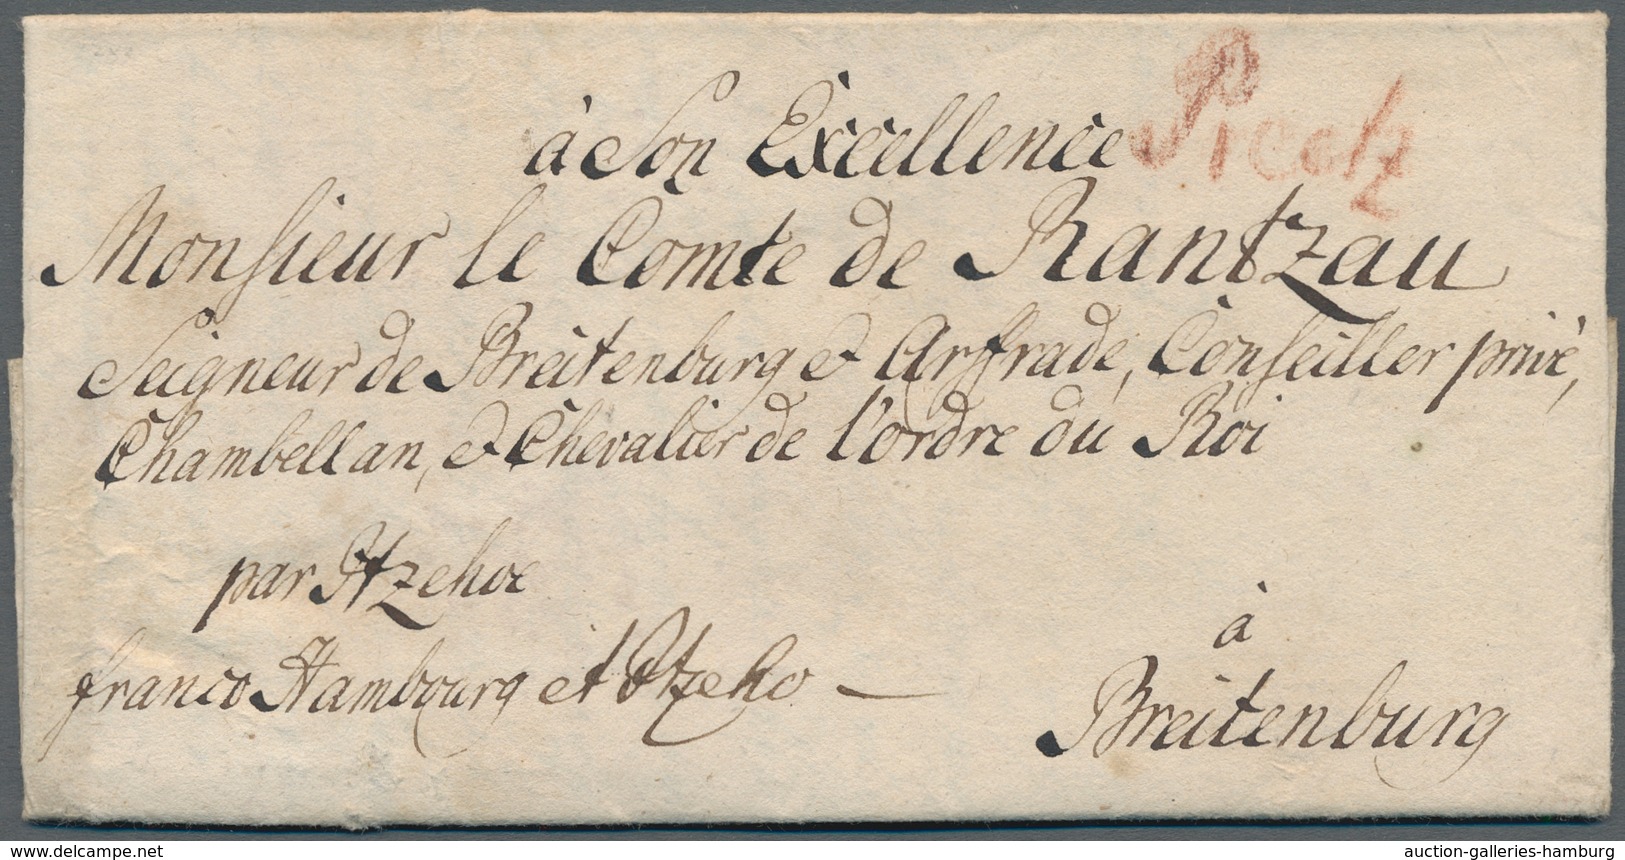 à Son Excellence
Preetz
Monsieur le Comte de Rantzau
Seigneur de Breitenburg & Arfrade, Conseiller privé,
Chambellan, & Chevalier de l'ordre du Roi
par Itzehoe
franco Hambourg et Itzeho
à
Breitenburg
www.delcampe.net
auction-galleries-hamburg